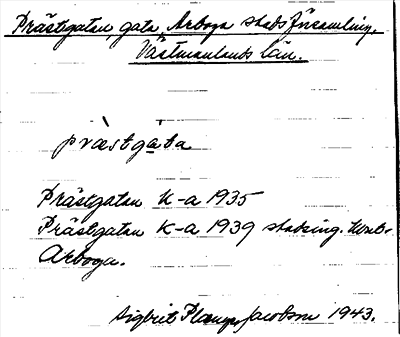 Prästgatan, gata, Arboga stads församling,
Västmanlands län.
prästgạta
Prästgatan K-a 1935
Prästgatan K-a 1939 stadsing.
Arboga.
Sigbrit Plænge Jacobson 1943.